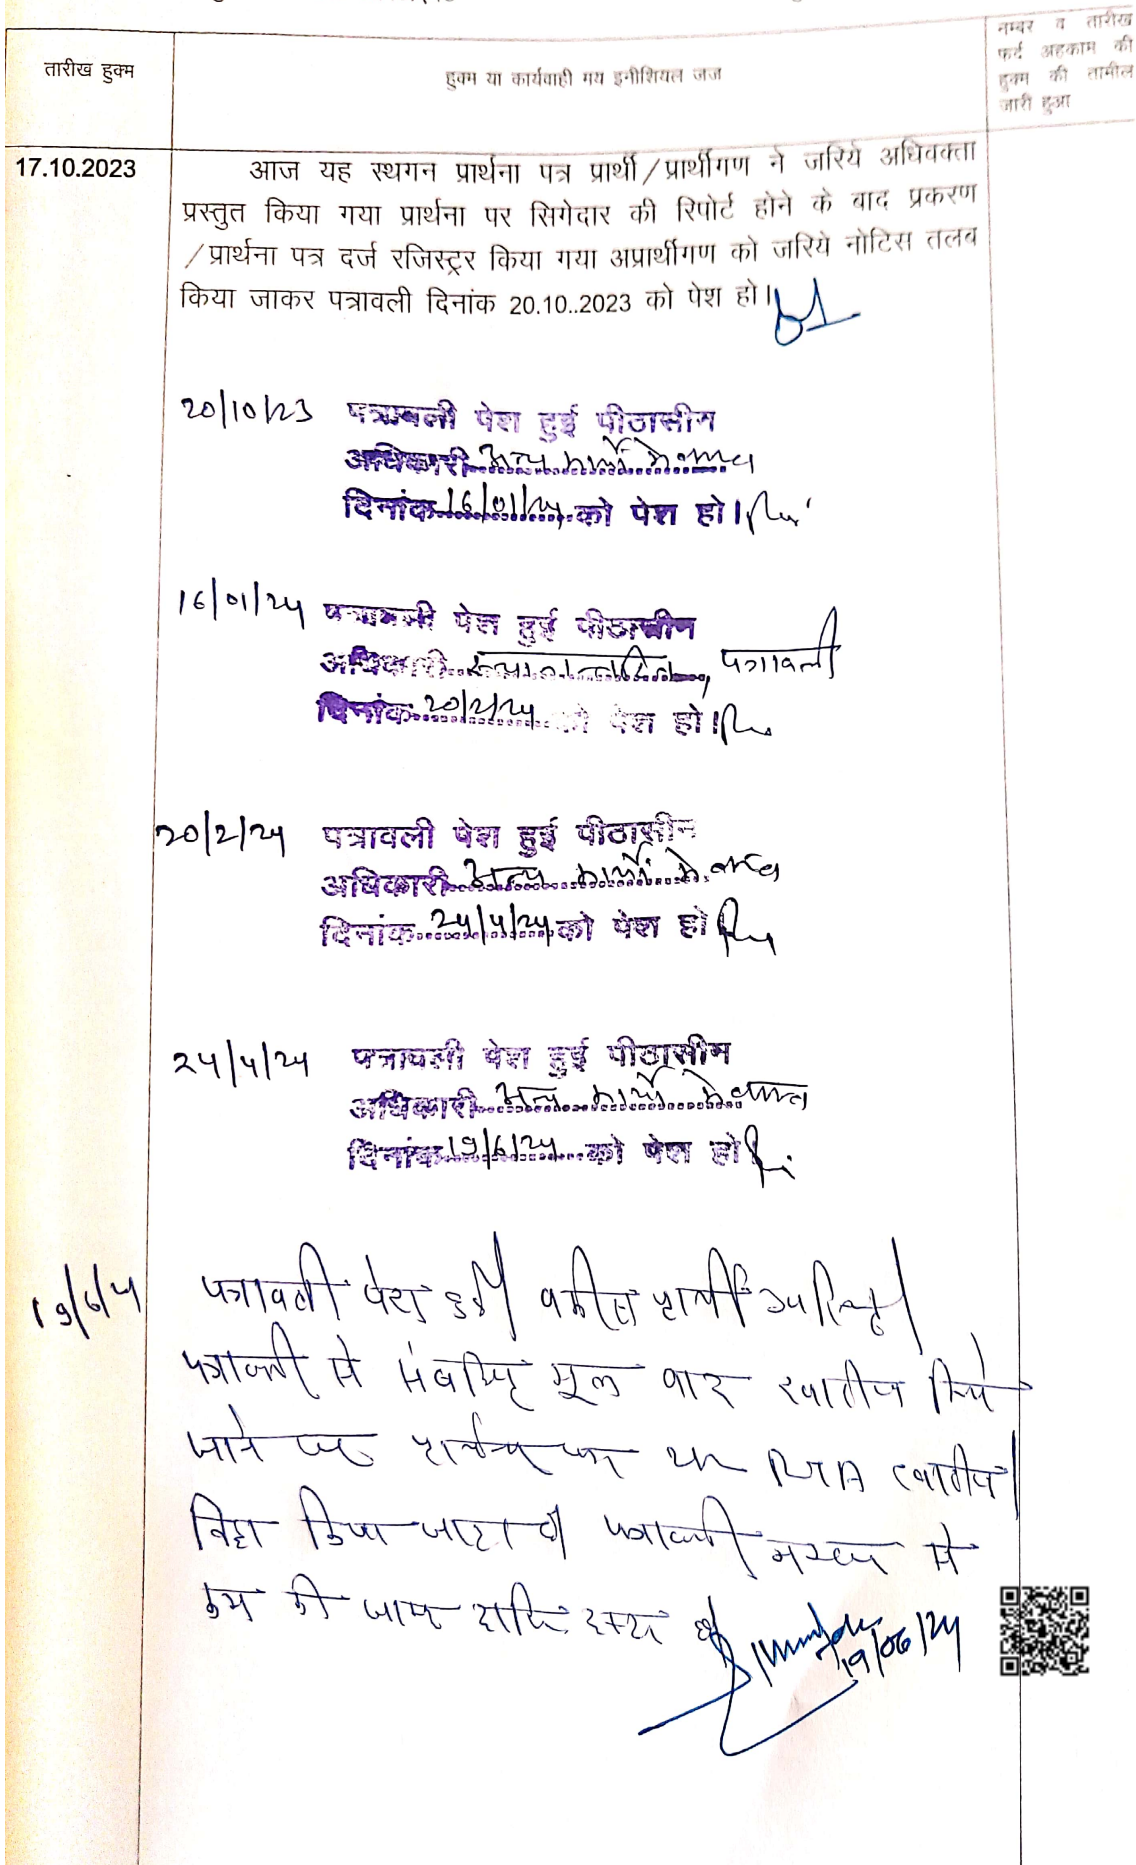 तारीख हुक्म
हुक्म या कार्यवाही मय इनीशियल जज
नम्बर व तारीख
फर्द अहकाम की
हुक्म की तामील
जारी हुआ
17.10.2023
आज यह स्थगन प्रार्थना पत्र प्रार्थी/प्रार्थीगण ने जरिये अधिवक्ता
प्रस्तुत किया गया प्रार्थना पर सिगेदार की रिपोर्ट होने के बाद प्रकरण
/प्रार्थना पत्र दर्ज रजिस्ट्रर किया गया अप्रार्थीगण को जरिये नोटिस तलब
किया जाकर पत्रावली दिनांक 20.10..2023 को पेश हो।
20/10/23 पत्रावली पेश हुई पीठासीन
अधिकारी अन्य कार्यो मे व्यस्त
दिनांक 16/01/24 को पेश हो।
16/01/24 पत्रावली पेश हुई पीठासीन
अधिकारी, पत्रावली
दिनांक 20/2/24 को पेश हो।
20/2/24 पत्रावली पेश हुई पीठासीन
अधिकारी अन्य कार्यो मे व्यस्त
दिनांक 24/4/24 को पेश हो
24/4/24 पत्रावली पेश हुई पीठासीन
अधिकारी अन्य कार्यो मे व्यस्त
दिनांक 19/6/24 को पेश हो
19/6/24 पत्रावली पेश हुई। वकील प्रार्थी उपस्थित।
पत्रावली से संबंधित मूल वाद खारीज किये
जाने पर प्रार्थना पत्र RTA खारीज
किया जाता है। पत्रावली नम्बर से
कम की जाकर दाखिल दफ्तर हो।
19/06/24